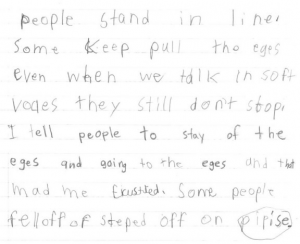 people stand in line.
Some keep pull the eges
even when we talk in soft
voges they still don't stop.
I tell people to stay of the
eges and going to the eges and that
mad me frustited. Some people
fell off of steped off on pirpise.